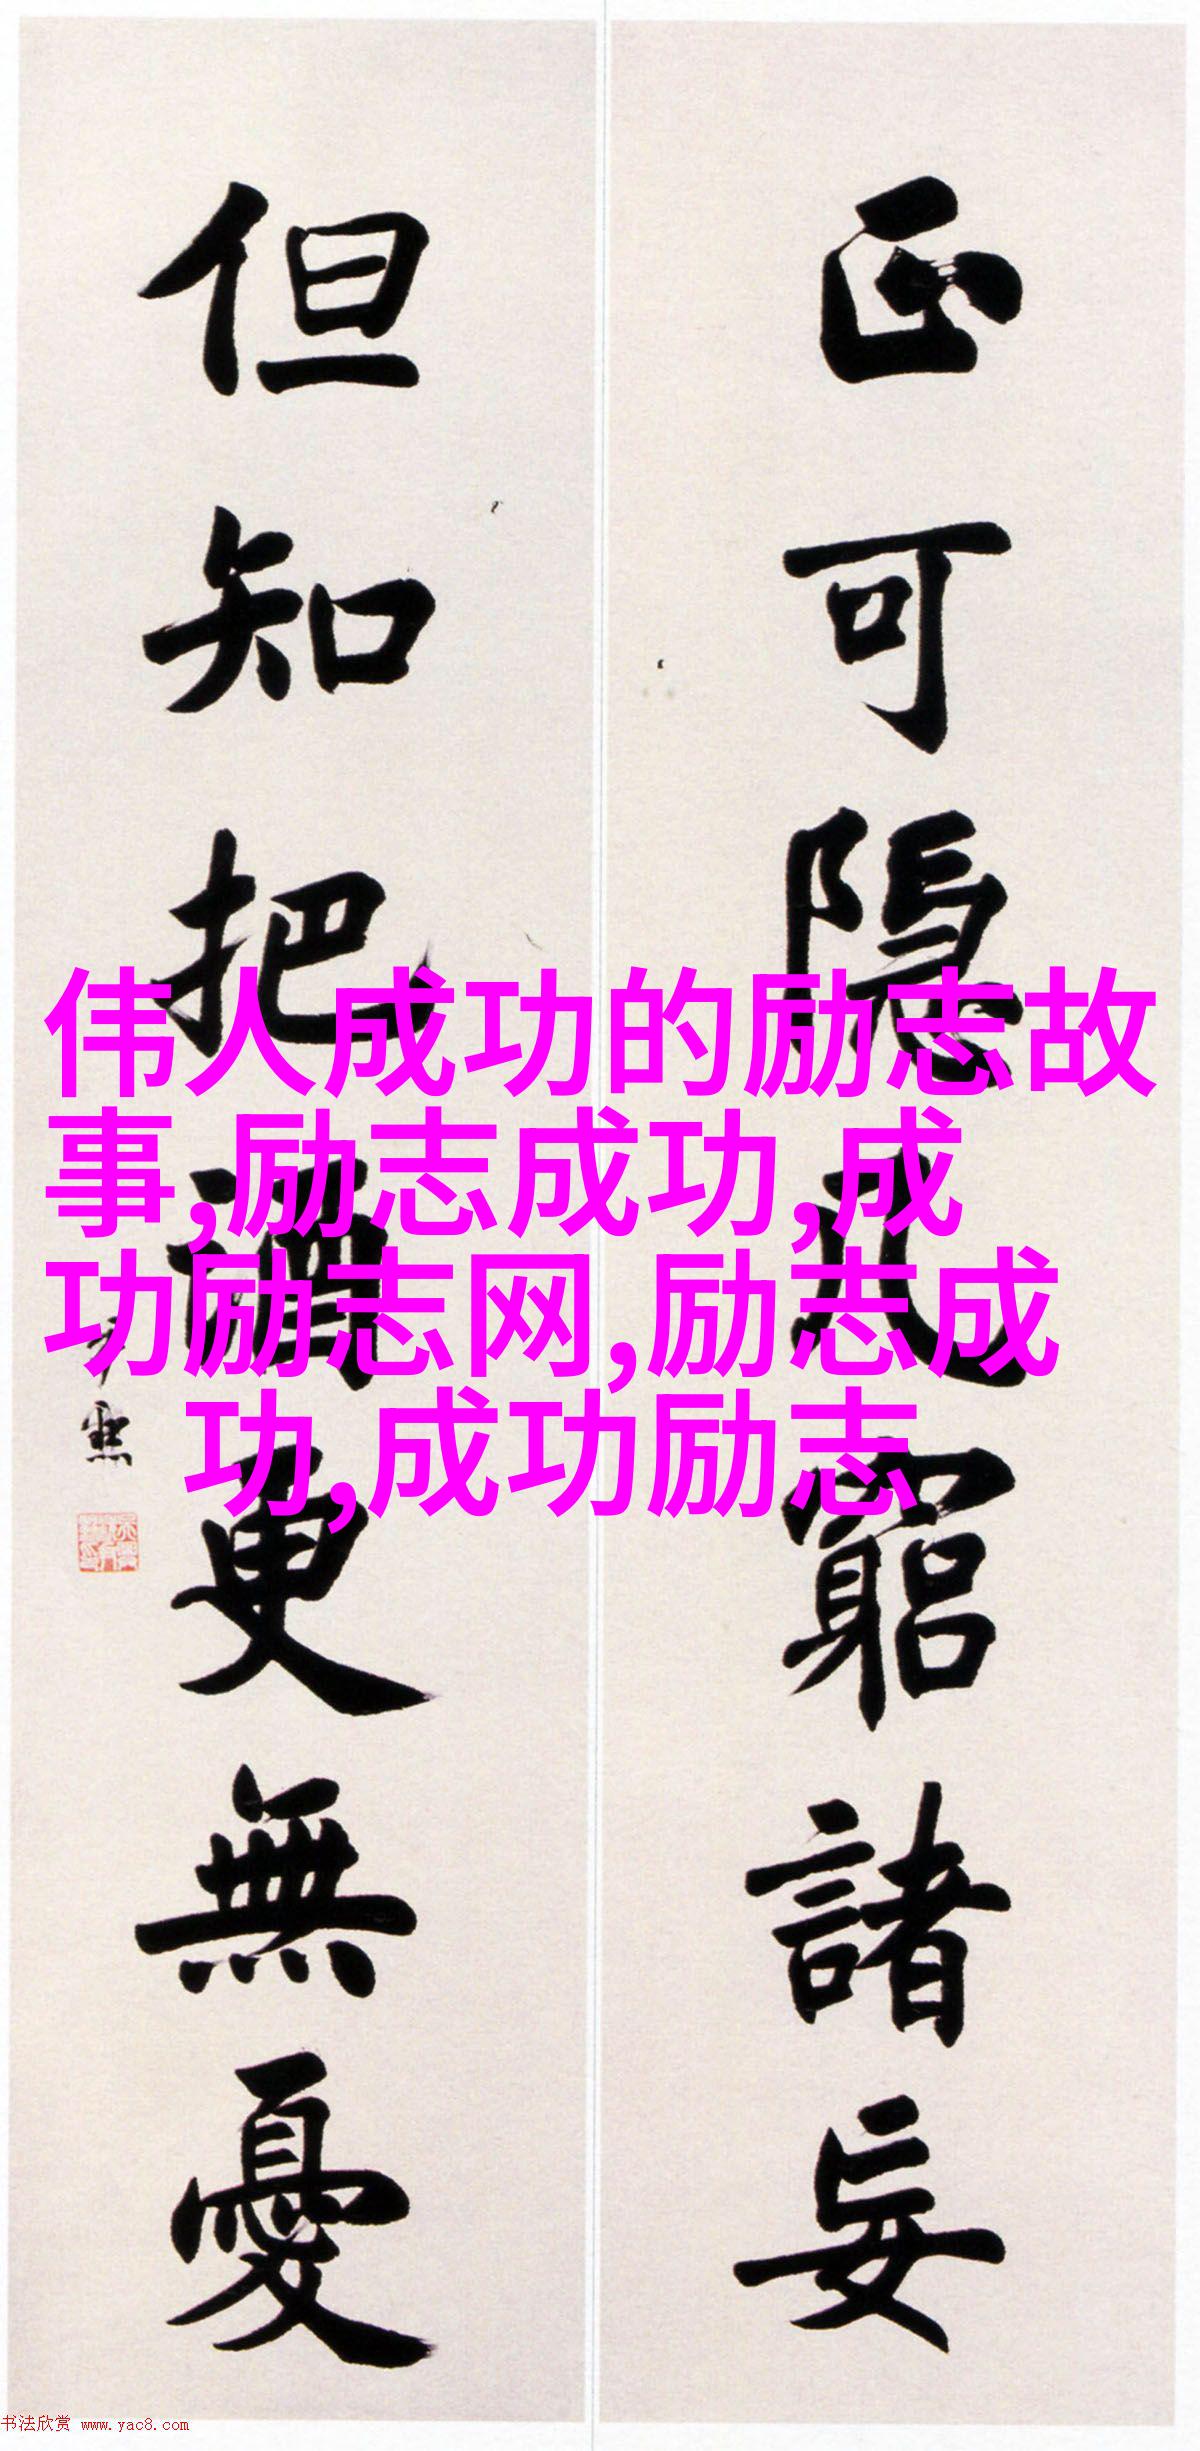 正可隱几窮諸妄
但知把酒更無憂
伟人成功的励志故
事,励志成功,成
功励志网,励志成
功,成功励志
书法欣赏 www.yac8.com